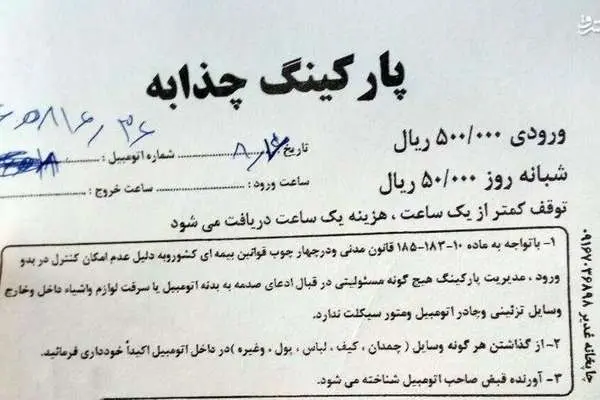 مشرق
پارکینگ چذابه
ورودی ۵۰۰/۰۰۰ ریال
شبانه روز ۵۰/۰۰۰ ریال
تاریخ ۸/۱۶ شماره اتومبیل :
ساعت ورود : ساعت خروج :
توقف کمتر از یک ساعت ، هزینه یک ساعت دریافت می شود
۱- باتواجه به ماده ۱۰-۱۸۳-۱۸۵ قانون مدنی ودرچهار چوب قوانین بیمه ای کشوروبه دلیل عدم امکان کنترل در بدو
ورود ، مدیریت پارکینگ هیچ گونه مسئولیتی در قبال ادعای صدمه به بدنه اتومبیل یا سرقت لوازم واشیاء داخل وخارج
وسایل تزئینی وچادر اتومبیل ومتور سیکلت ندارد.
۲- از گذاشتن هر گونه وسایل ( چمدان ، کیف ، لباس ، پول ، وغیره ) در داخل اتومبیل اکیداً خودداری فرمائید.
۳- آورنده قبض صاحب اتومبیل شناخته می شود.
چاپخانه غدیر ۰۹۱۶۷۰۳۶۸۹۸